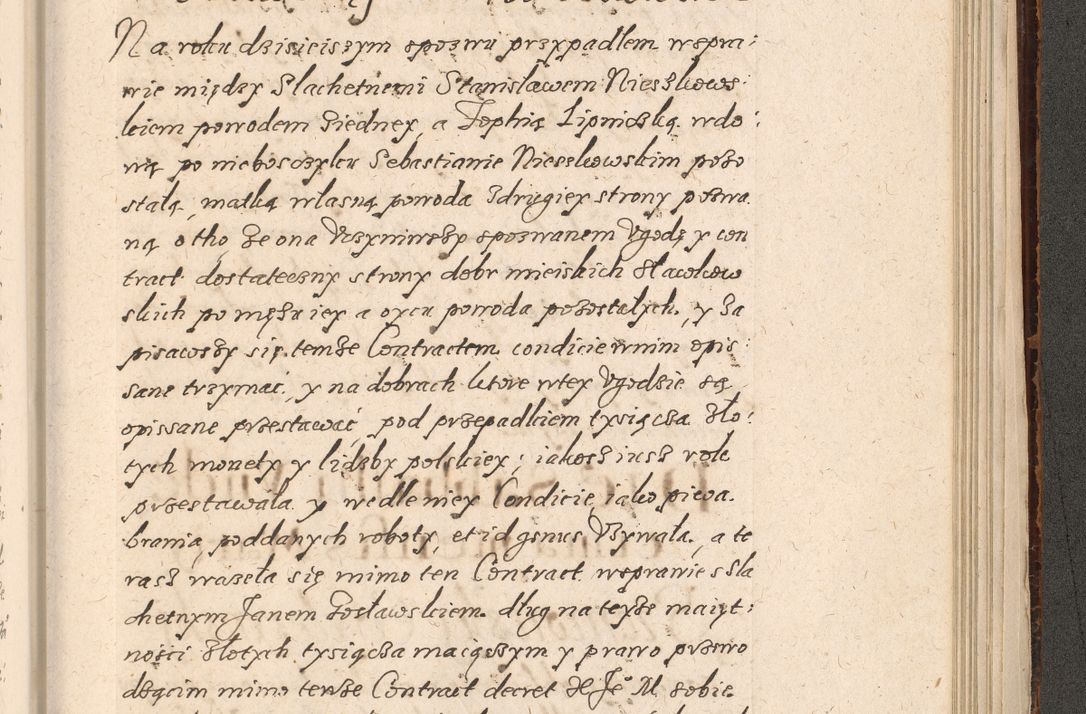 Na roku dzisieiszym spozwu przypadłem wspra:
wie między Slachetnemi Stanisławem Nieszkows:
kiem powodem ziedney, a Zophią Lipnicką wdo:
wą po nieboszczyku Sebastianie Nieszkowskim pozo
stałą, matką własną powoda zdrugiey strony pozwa
ną otho że ona Vczyniwszy spozwanem Vgodę y con
tract dostateczny strony dobr mieiskich Sławkow
skich po mężu iey a oycu powoda pozostałych, y za
pisawszy się temże Contractem condicie wnim opis:
sane trzymać, y na dobrach ktore wtey Vgodzie są
opissane przestawać pod przepadkiem tysiącza zło:
tych monety y lidzby polskiey; iakosz iusz rok
przestawała y wedle niey Condicie, iako piwa
brania, poddanych roboty, et id genus Vzywała, a te
rasz wazeła się mimo ten Contract wsprawie s Sla
chetnym Janem Zosławskiem dług na teyże maięt:
ności złotych tysiącza maiączym y prawo przewo
dzącim mimo tenże Contract decret Je° M. sobie